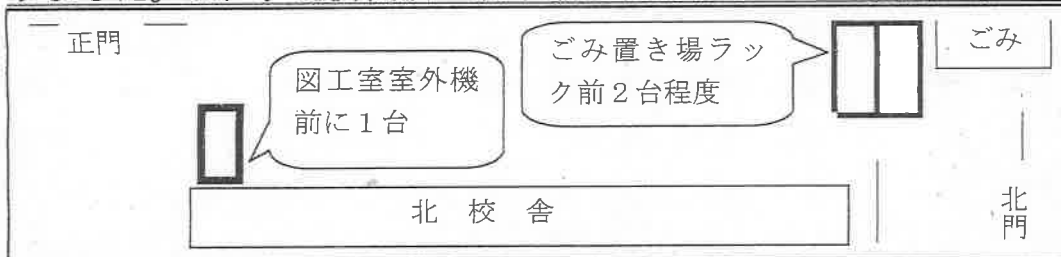 正門
図工室室外機
前に1台
ごみ置き場ラッ
ク前2台程度
ごみ
北校舎
北門